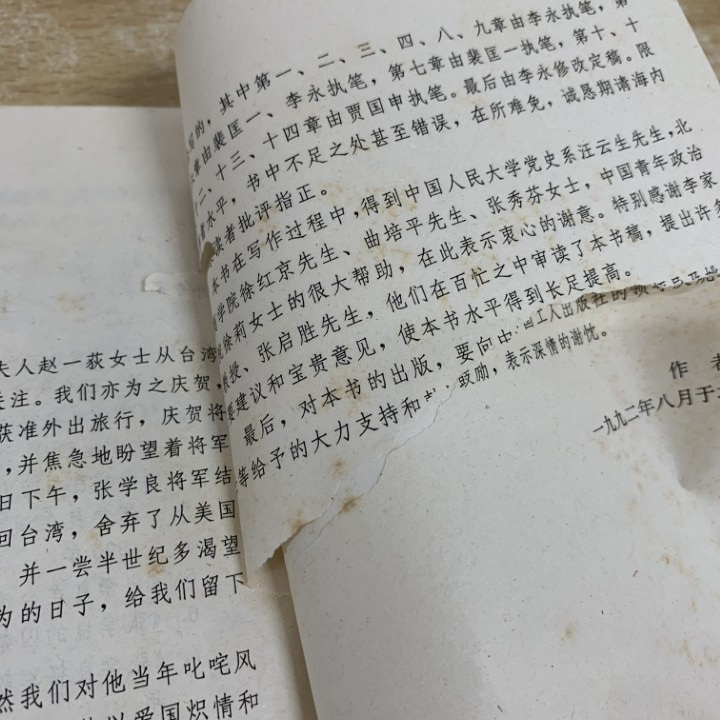 夫人赵一荻女士从台湾
关注。我们亦为之庆贺,
获准外出旅行,庆贺将
,并焦急地盼望着将军
日下午,张学良将军结
回台湾,舍弃了从美国
并一尝半世纪多渴望
为的日子,给我们留下
然我们对他当年叱咤风
爱国炽情和
的,其中第一、二、三、四、八、九章由李永执笔,第
章由裴匡一、李永执笔,第七章由裴匡一执笔,第十、十
二、十三、十四章由贾国申执笔。最后由李永修改定稿。限
水平,书中不足之处甚至错误,在所难免,诚恳期请海内
读者批评指正。
本书在写作过程中,得到中国人民大学党史系汪云生先生,北
学院徐红京先生、曲培平先生、张秀芬女士,中国青年政治
徐莉女士的很大帮助,在此表示衷心的谢意。特别感谢李家
教授、张启胜先生,他们在百忙之中审读了本书稿,提出许多
建议和宝贵意见,使本书水平得到长足提高。
最后,对本书的出版,要向中国工人出版社的
等给予的大力支持和鼓励,表示深情的谢忱。
作者
一九九二年八月于